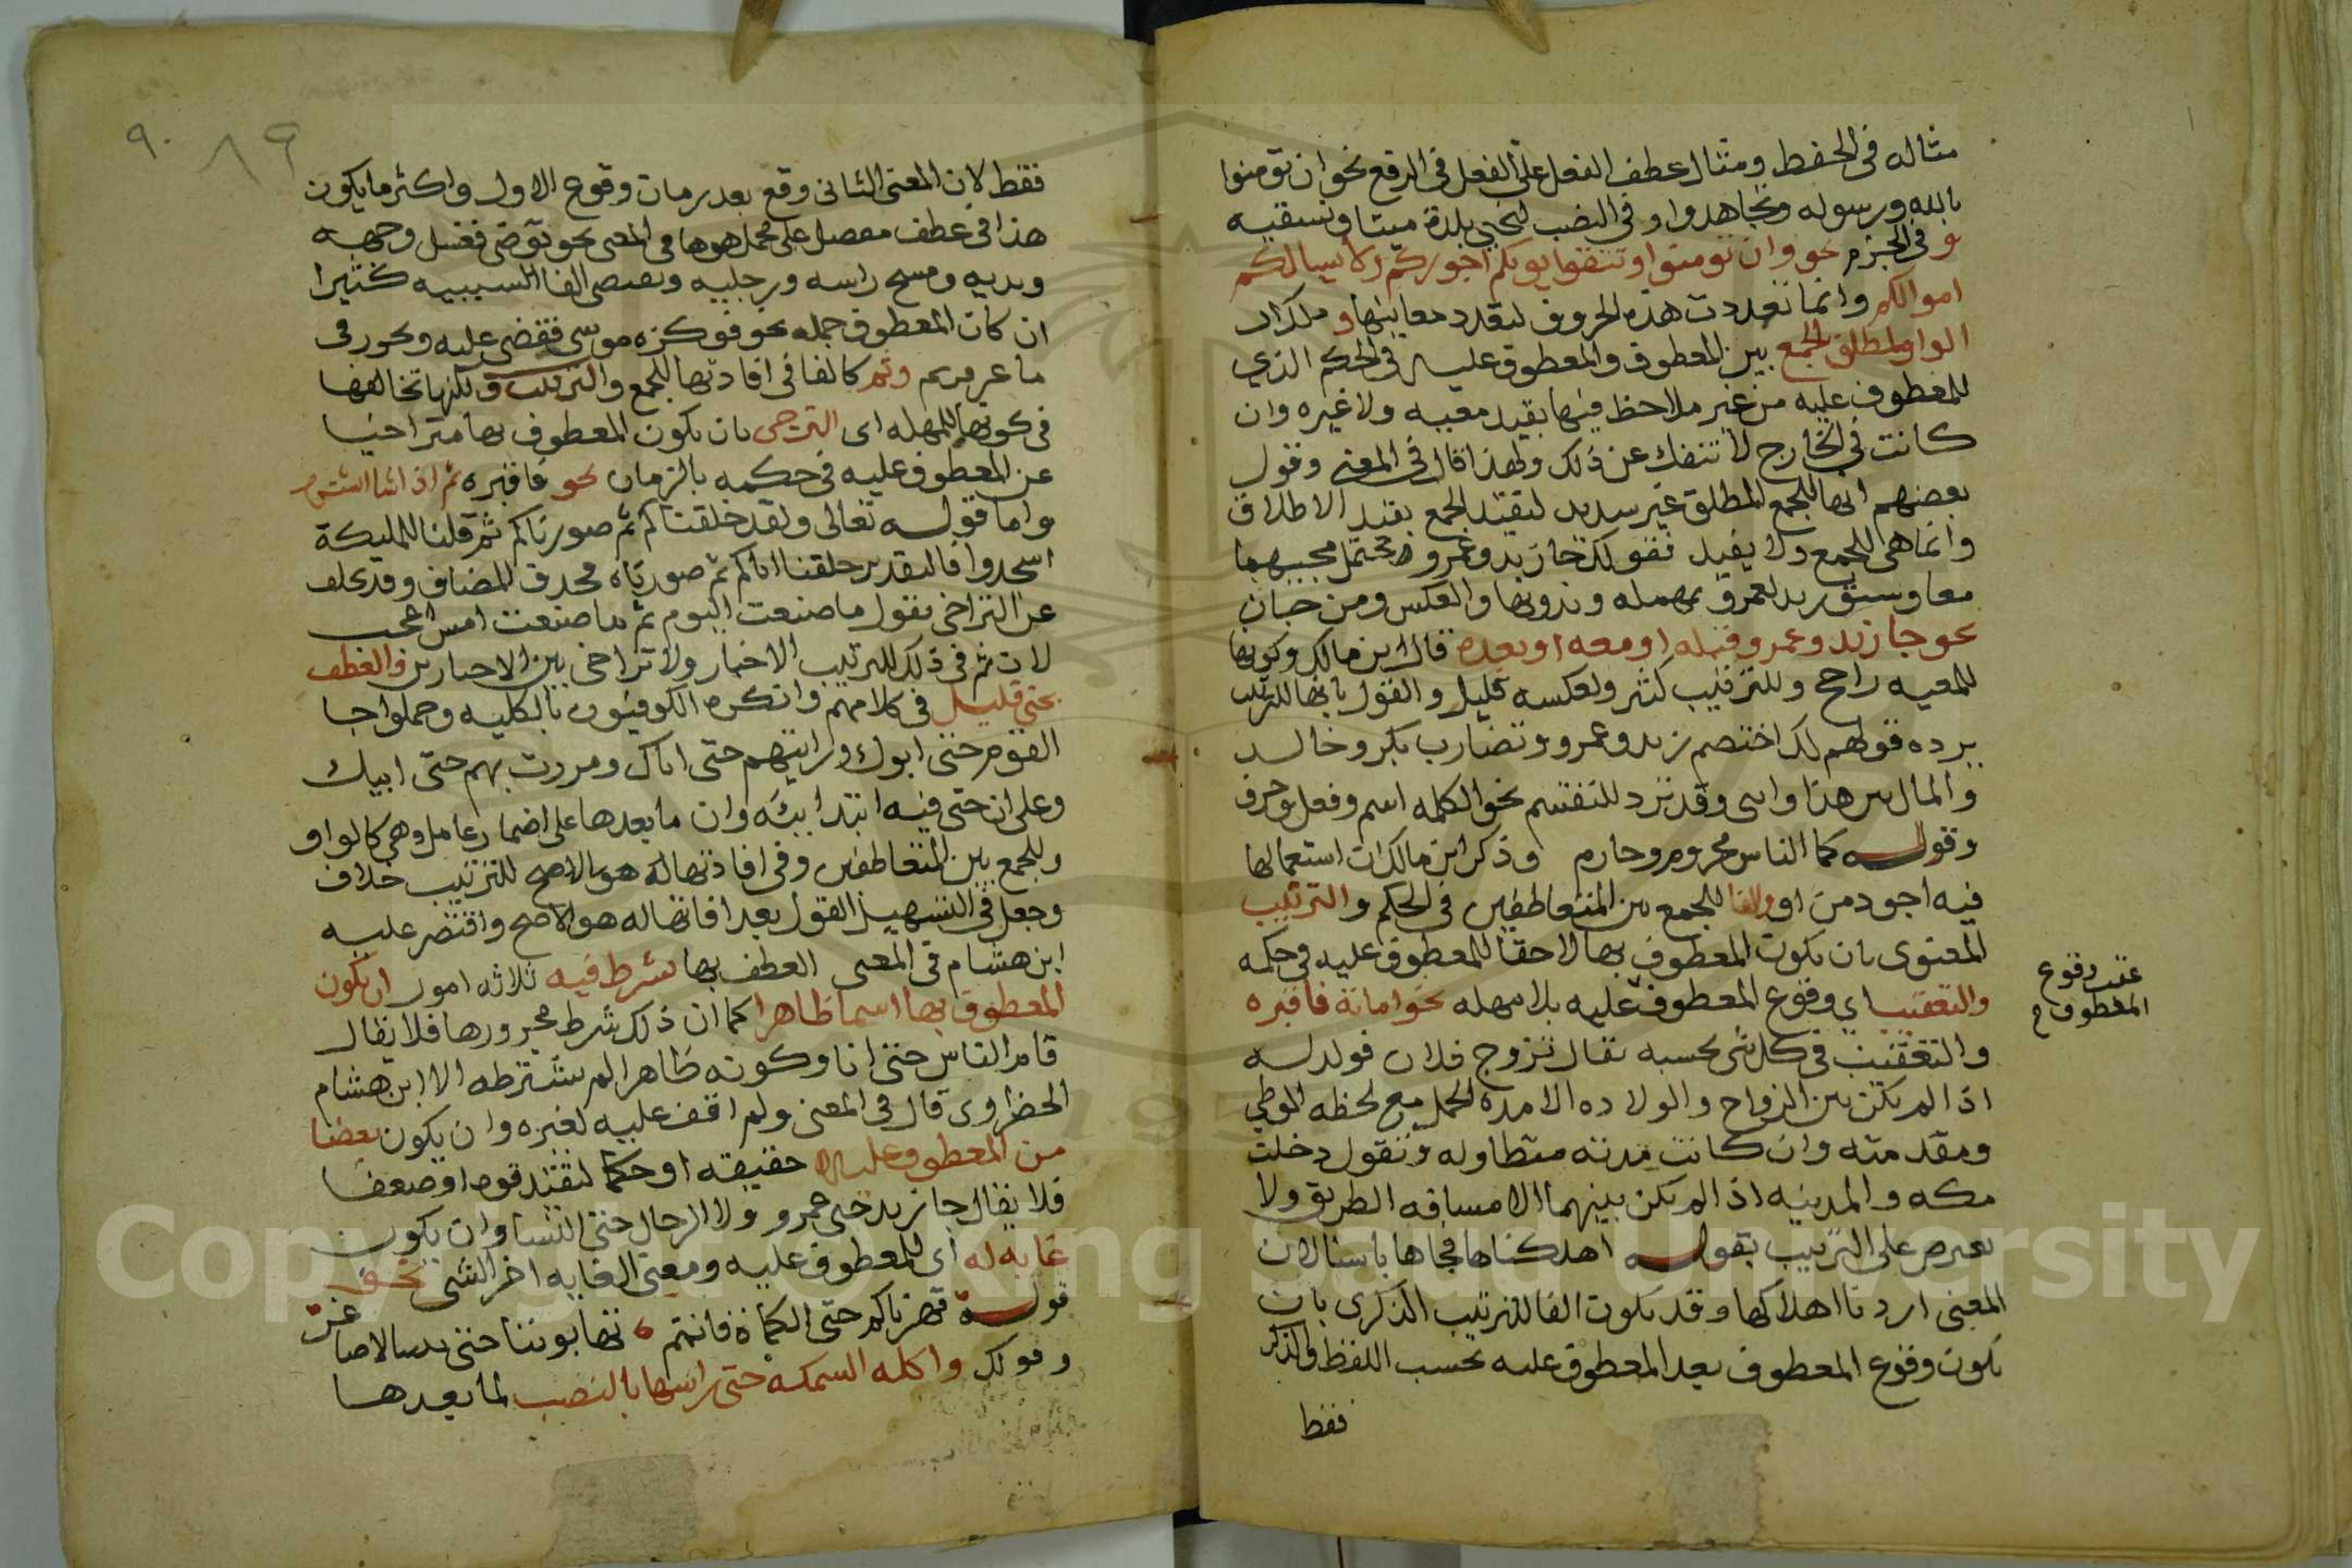 مثاله في الخفط ومثال عطف الفعل على الفعل في الرفع نحو ان تومنوا
بالله ورسوله وتجاهدوا وفي النصب لنحيي بلدة ميتا ونسقيه
وفي الجزم نحو وان تومنوا وتتقوا يوتكم اجوركم ولا يسالكم
اموالكم وانما تعددت هذه الحروف لتعدد معانيها
الواو لمطلق الجمع بين المعطوف والمعطوف عليه في الحكم الذي
للمعطوف عليه من غير ملاحظ فيها بقيد معيه ولا غيره وان
كانت في الخارج لا تنفك عن ذلك ولهذا قال في المغني وقول
بعضهم انها للجمع المطلق غير سديد لتقيد الجمع بقيد الاطلاق
وانما هي للجمع ولا يقيد فقولك جا زيد وعمرو محتمل مجيبهما
معا وسبق زيد لعمرو بمهمله وبدونها والعكس ومن
نحو جا زيد وعمرو قبله او معه او بعده قال ابن مالك وكونها
للمعيه راجح وللترتيب كثير ولعكسه قليل والقول بانها للترتيب
يرده قولهم لك اختصم زيد وعمرو وتضارب بكر وخالد
والمال بين هذا وابي وقد ترد للتقسم نحو الكلمه اسم وفعل وحرف
وقوله كما الناس مجروم وجارم وذكر ابن مالك ان استعمالها
فيه اجود من او والفا للجمع بين المتعاطفين في الحكم والترتيب
المعنوي بان يكون المعطوف بها لاحقا للمعطوف عليه في حكمه
والتعقيب اي وقوع المعطوف عليه بلا مهله نحو اماته فاقبره
عقب وقوع
المعطوف
والتعقيب في كل شي بحسبه يقال تزوج فلان فولد له
اذا لم يكن بين الزواج والولاده الا مدة الحمل مع لحظه الوطي
ومقدمته وان كانت مدته متطاوله وتقول دخلت
مكه والمدينه اذا لم يكن بينهما الا مسافه الطريق ولا
يعترض على الترتيب بقوله اهلكناها فجاها باسنا لان
المعنى اردنا اهلاكها وقد تكون الفا للترتيب الذكري بان
يكون وقوع المعطوف بعد المعطوف عليه بحسب اللفظ والذكر
فقط
٩٠ ٨٩
فقط لان المعنى الثاني وقع بعد زمان وقوع الاول واكثر ما يكون
هذا في عطف مفصل على مجمل هو هو في المعنى نحو توضى فغسل وجهه
ويديه ومسح راسه ورجليه وتقتضي الفا السببيه كثيرا
ان كان المعطوف جمله نحو فوكزه موسى فقضى عليه
وثم كالفا في افادتها للجمع والترتيب ولكنها تخالفها
في كونها للمهله اى التراخي بان يكون المعطوف بها متراخيا
عن المعطوف عليه في حكمه بالزمان نحو فاقبره ثم اذا شا انشره
واما قوله تعالى ولقد خلقناكم ثم صورناكم ثم قلنا للمليكة
اسجدوا فالتقدير خلقنا اباكم ثم صورناه فحذف المضاف وقد تخلف
عن التراخي تقول ما صنعت اليوم ثم ما صنعت امس اعجب
لان ثم في ذلك لترتيب الاخبار ولا تراخي بين الاخبارين والعطف
بحتى قليل في كلامهم وانكره الكوفيون بالكليه وحملوا جا
القوم حتى ابوك ورايتهم حتى اباك ومررت بهم حتى ابيك
وعلى ان حتى فيه ابتدائيه وان ما بعدها على اضمار عامل وهي كالواو
وللجمع بين المتعاطفين وفي افادتها له هو الاصح للترتيب خلاف
وجعل في التسهيل القول بعد افادتها له هو الاصح واقتصر عليه
ابن هشام في المغني العطف بها شرط فيه ثلاثه امور ان يكون
المعطوف بها اسما ظاهرا كما ان ذلك شرط مجرورها فلا يقال
قام الناس حتى انا وكونه ظاهرا لم يشترطه الا ابن هشام
الخضراوي قال في المغني ولم اقف عليه لغيره وان يكون بعضا
من المعطوف عليه حقيقه او حكما لتقيد قوه او ضعفا
فلا يقال جا زيد حتى عمرو ولا الرجال حتى النسا وان يكون
غايه له اي للمعطوف عليه ومعنى الغايه اخر الشي نحو
قوله قهرناكم حتى الكماة فانتم تهابوننا حتى بنينا الاصاغر
وقولك واكله السمكه حتى راسها بالنصب لما بعدها
Copyright © King Saud University